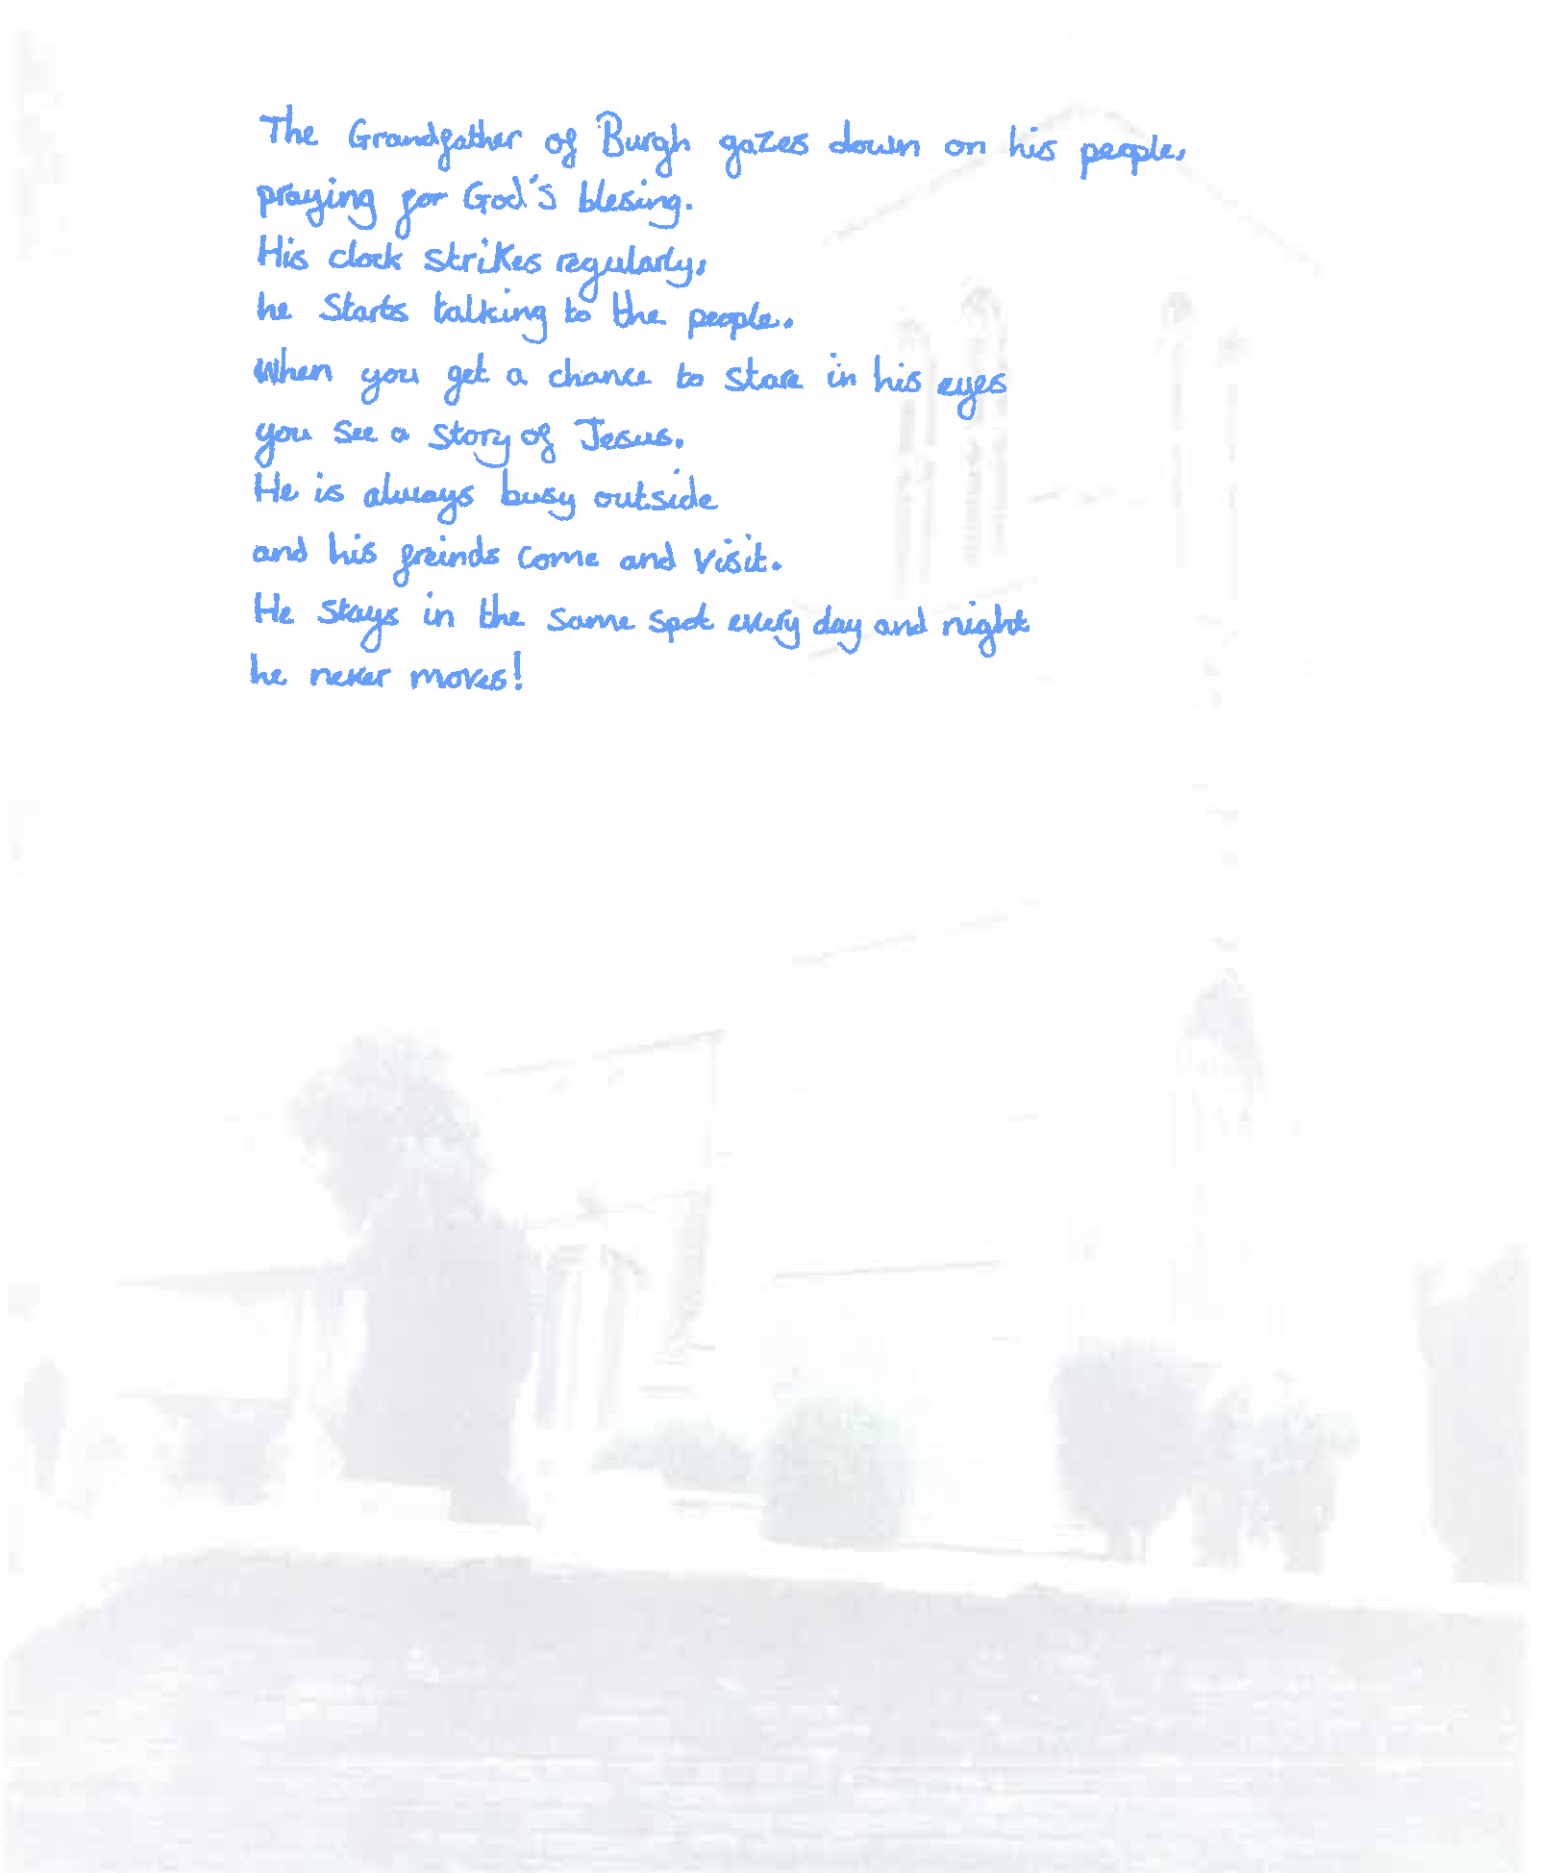 The Grandfather of Burgh gazes down on his people,
praying for God's blesing.
His clock strikes regularly,
he starts talking to the people.
When you get a chance to stare in his eyes
you see a story of Jesus.
He is always busy outside
and his freinds come and visit.
He stays in the same spot every day and night
he never moves!